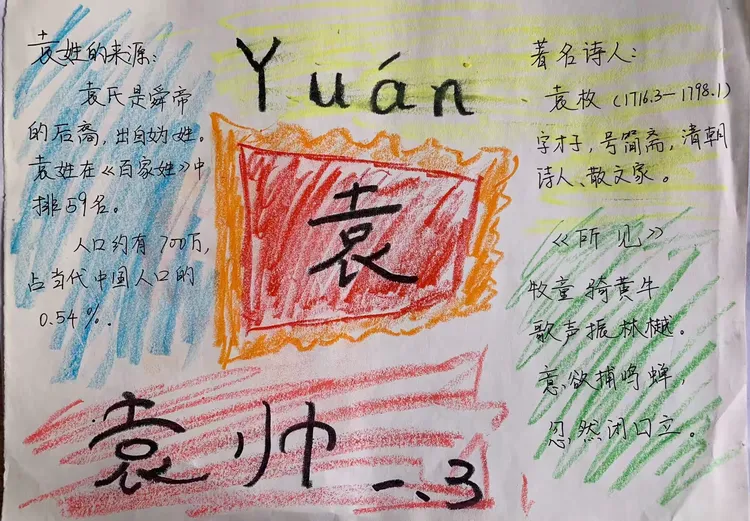 袁姓的来源:
袁氏是舜帝
的后裔,出自妫姓。
袁姓在《百家姓》中
排59名。
人口约有700万,
占当代中国人口的
0.54%.
Yuán
袁
著名诗人:
袁枚(1716.3—1798.1)
字子才,号简斋,清朝
诗人、散文家。
《所见》
牧童骑黄牛
歌声振林樾。
意欲捕鸣蝉,
忽然闭口立。
袁帅 一、3